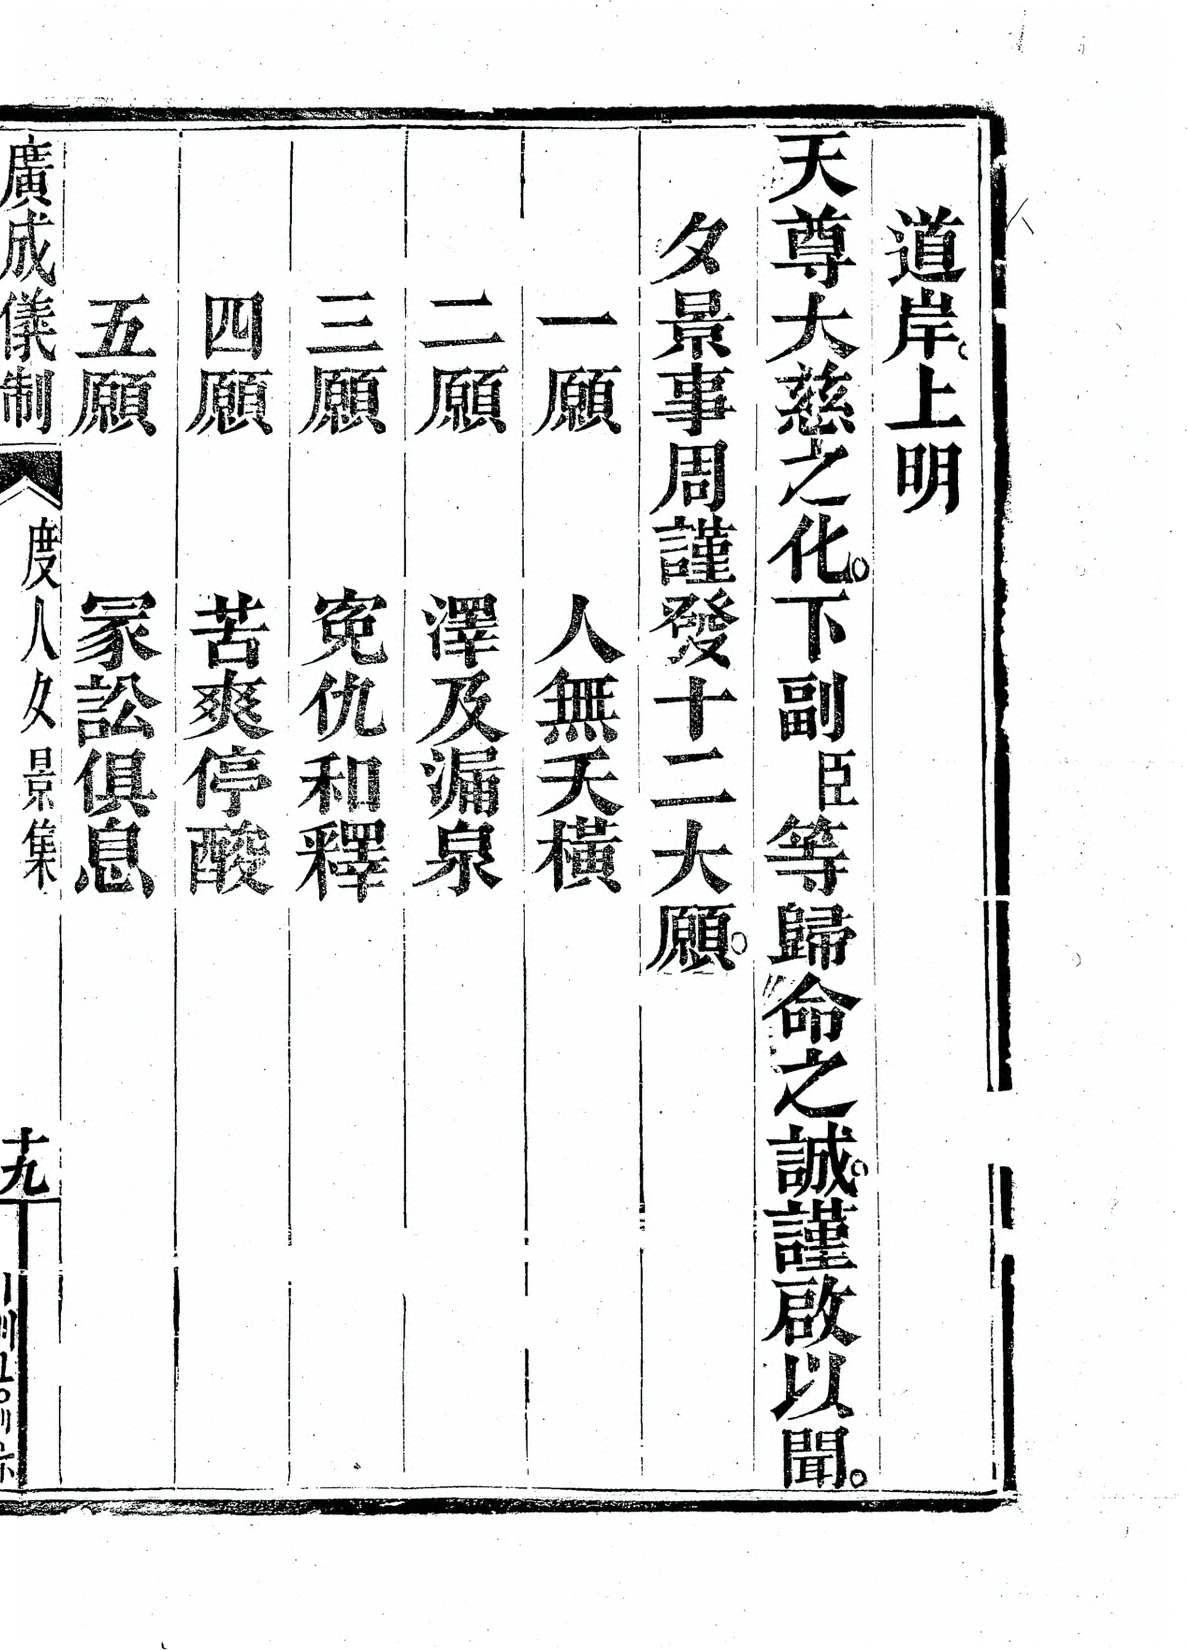 道岸。上明
天尊大慈之化。下副臣等歸命之誠。謹啟以聞。
夂景事周謹發十二大願。
一願　人無夭橫
二願　澤及漏泉
三願　寃仇和釋
四願　苦爽停酸
五願　冢訟俱息
廣成儀制　度人夂景集　十九